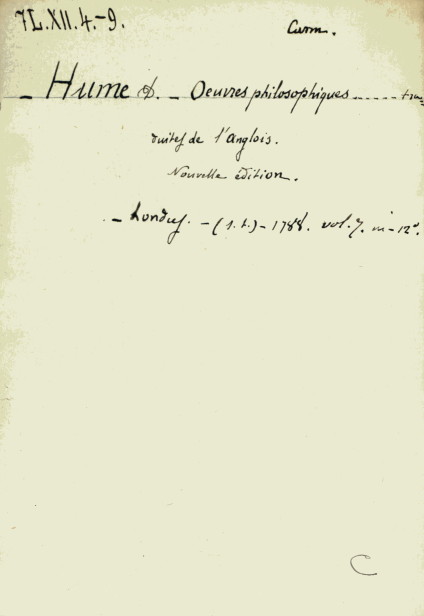 7L.XII.4.-9.
Curm.
- Hume D. - Oeuvres philosophiques ...... tra=
duites de l'Anglois.
Nouvelle édition.
- Londres. - (s.t.) - 1788. vol. 7. in-12°.
C